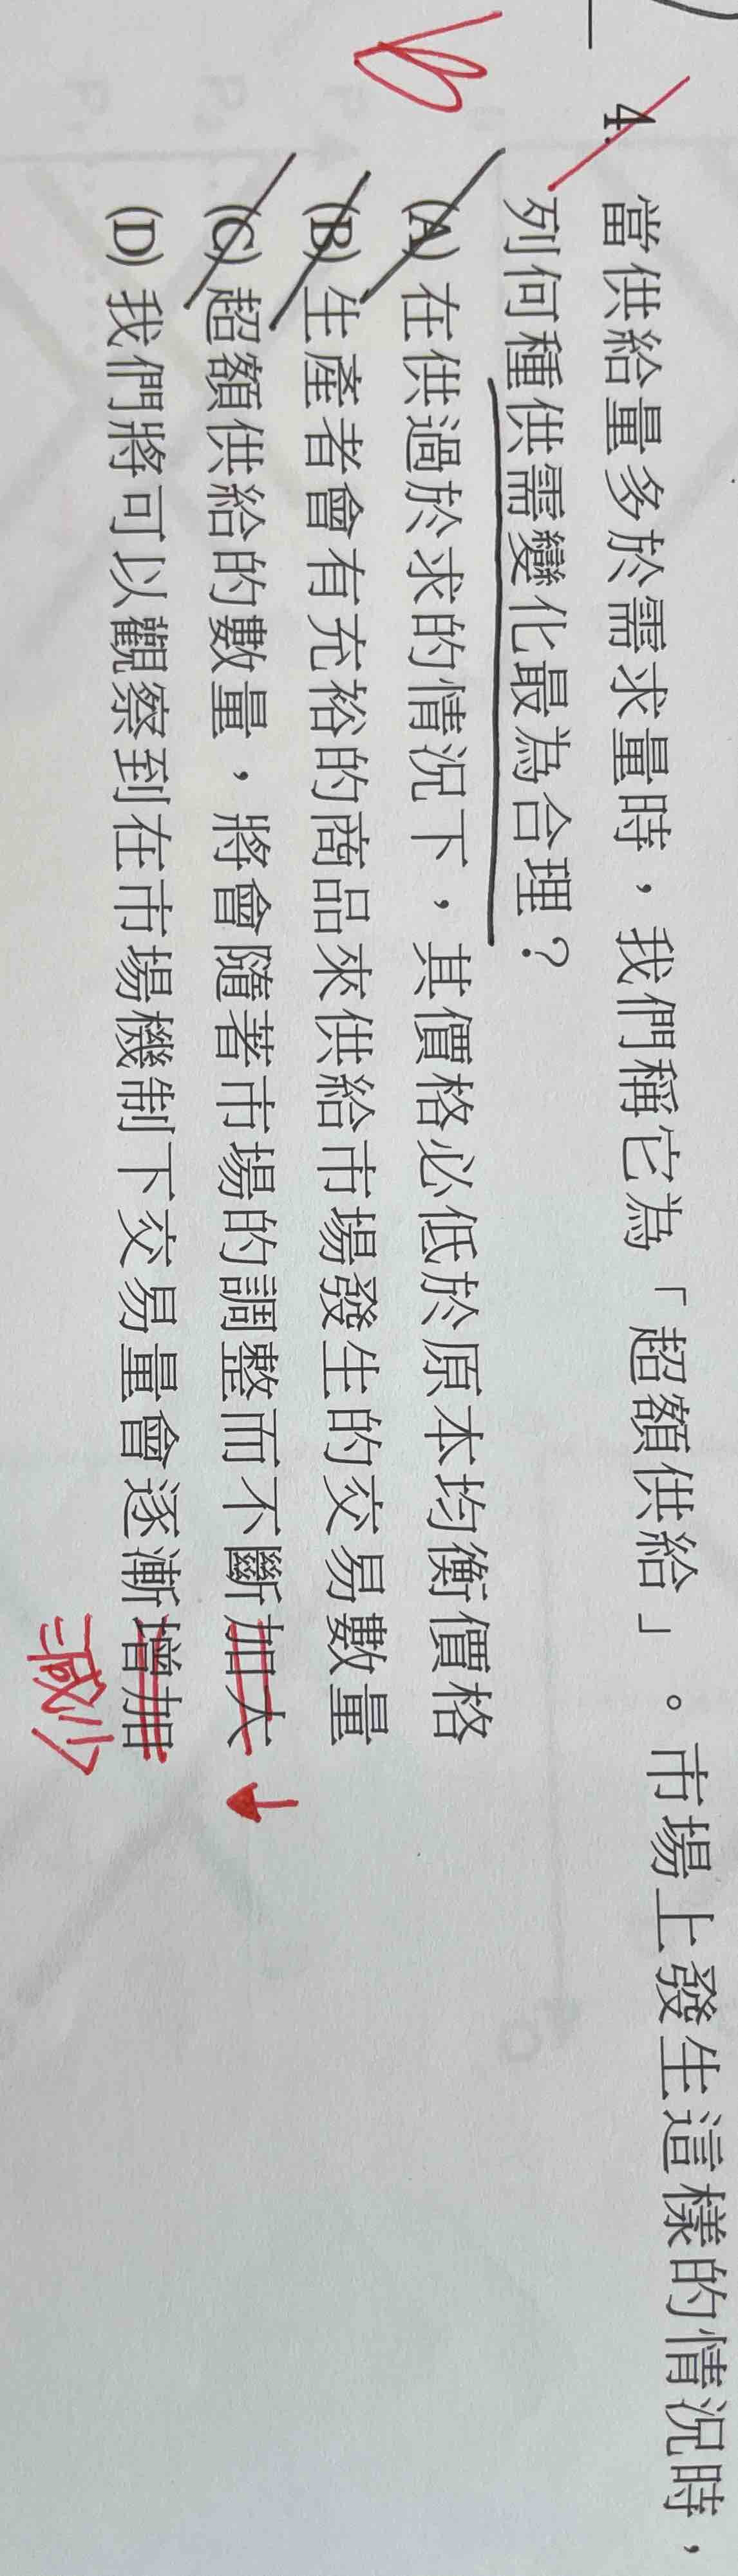 4. 當供給量多於需求量時，我們稱它為「超額供給」。市場上發生這樣的情況時，
列何種供需變化最為合理？
(A) 在供過於求的情況下，其價格必低於原本均衡價格
(B) 生產者會有充裕的商品來供給市場發生的交易數量
(C) 超額供給的數量，將會隨著市場的調整而不斷加大
(D) 我們將可以觀察到在市場機制下交易量會逐漸增加
減少